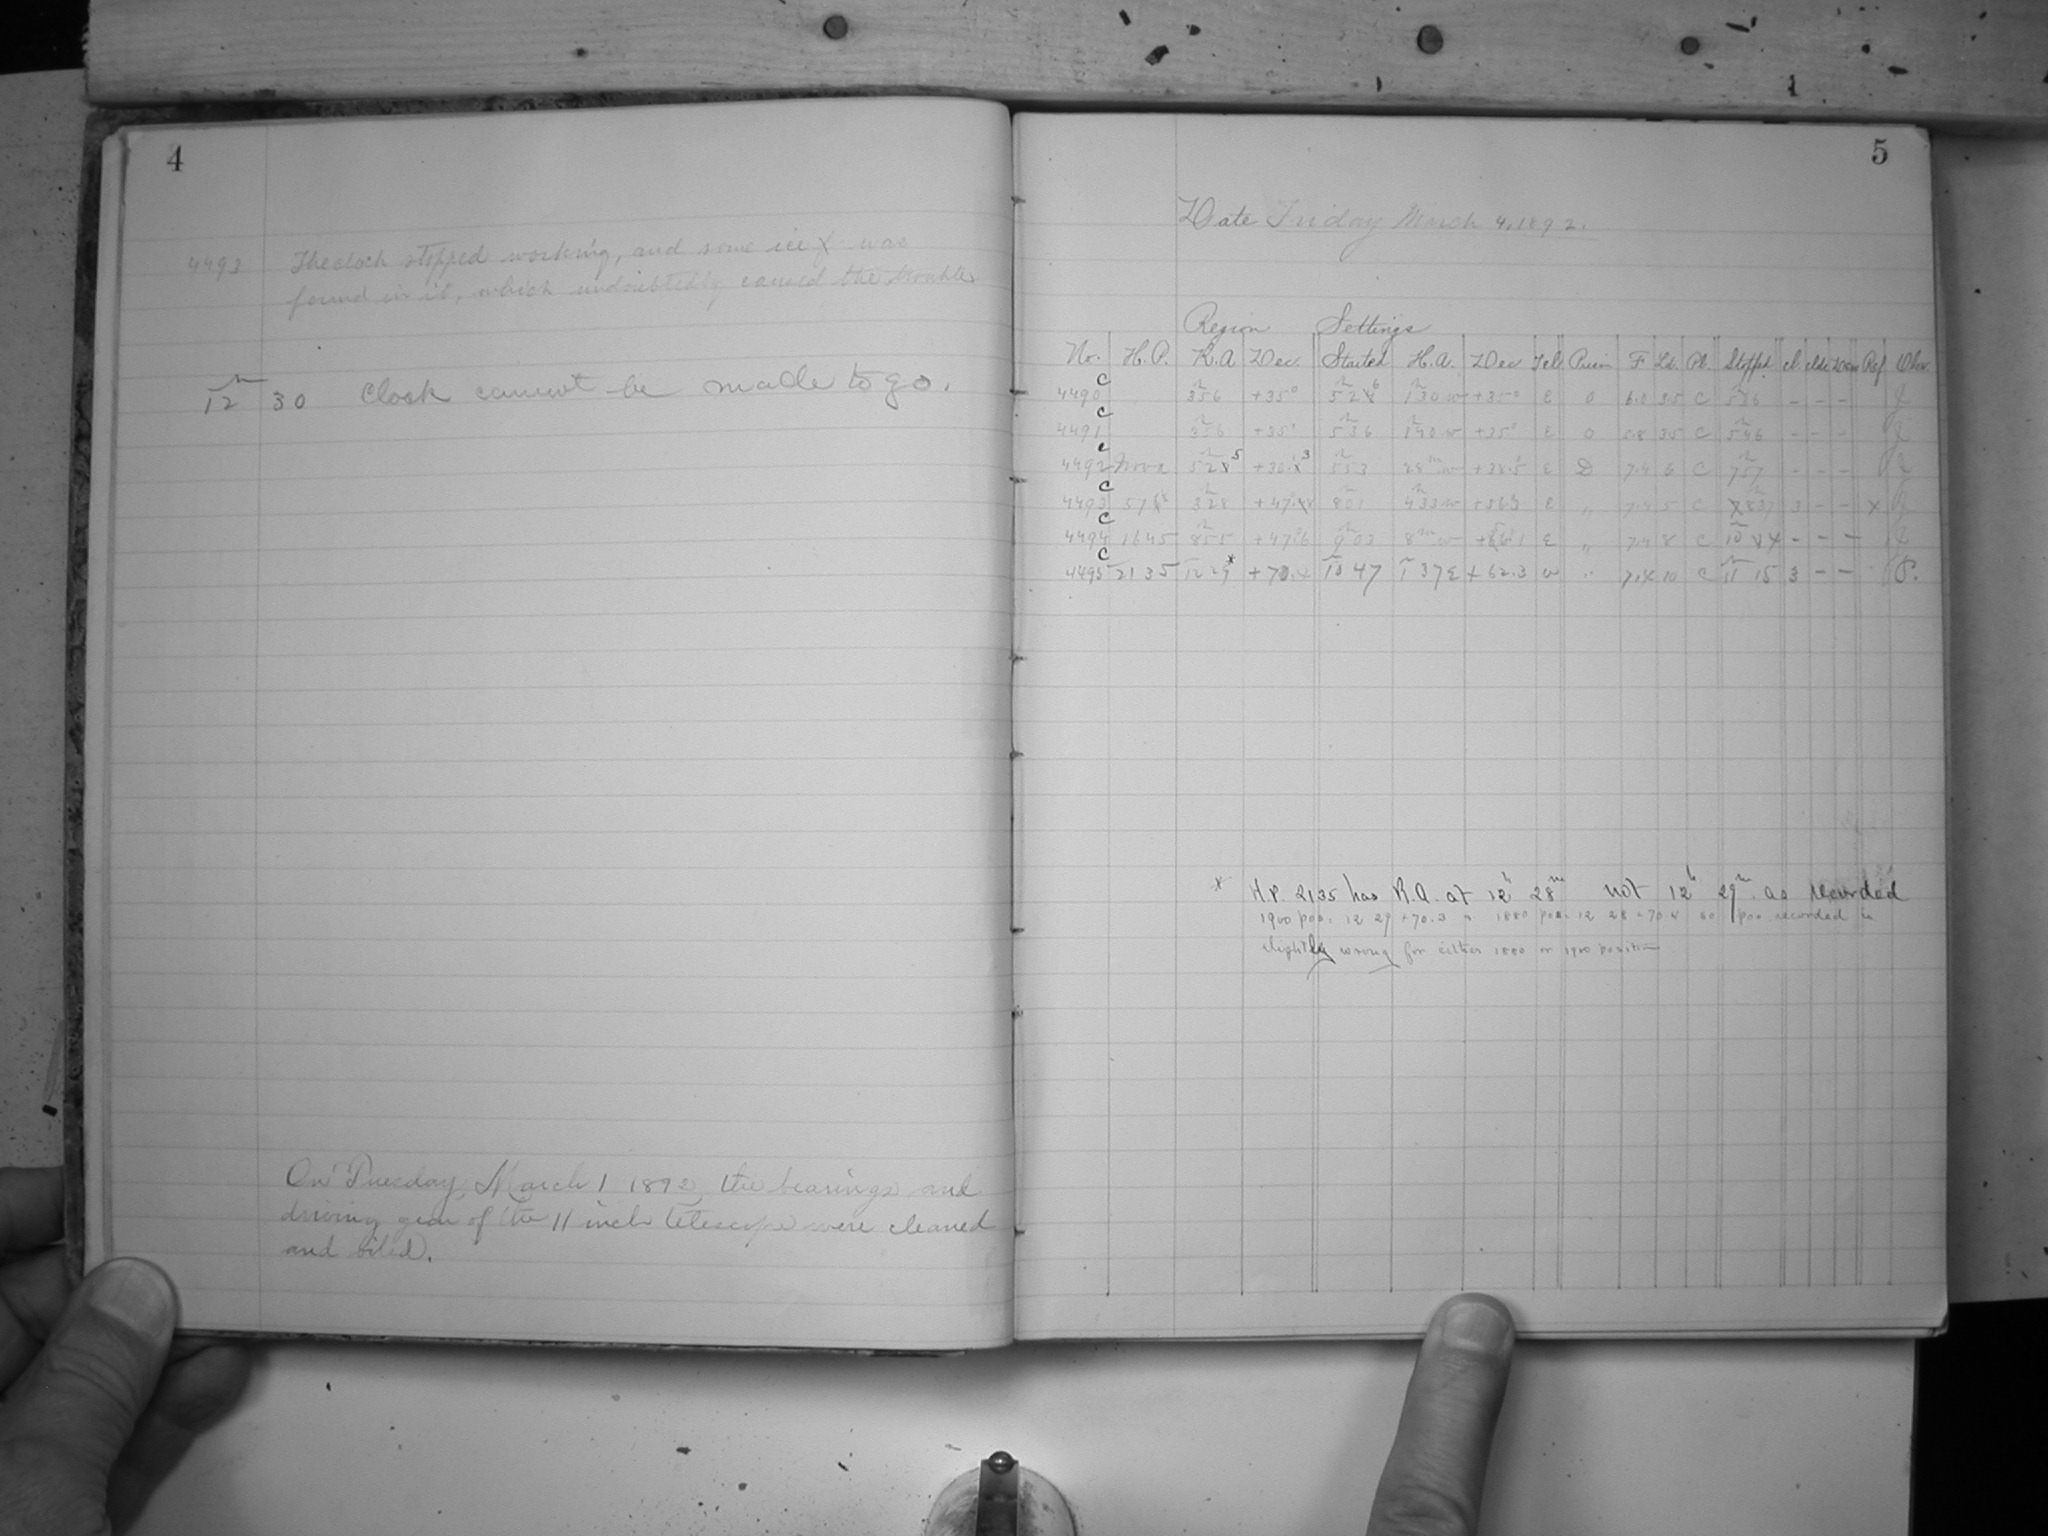 4
4493 The clock stopped working, and some ice was
found in it, which undoubtedly caused the trouble
12h 30 Clock cannot be made to go.
On Tuesday, March 1 1892, the bearings and
driving gear of the 11 inch telescope were cleaned
and oiled.
5
Date Friday March 4, 1892.
Region Settings
No. H.P. R.A Dec. Started H.A. Dec Tel Prism F Ld. Pl. Stopped cl. Ref Obser.
4490 C 3h56 +35° 1h30 w +35° E 0 6.0 35 C 5h36 - - - J
4491 C 3h56 +35° 5h36 1h40 w +35° E 0 5.8 35 C 5h46 - - -
4492 C Nova 5h53 E D 7.4 6 C 7h57 - - -
4493 C 3h28 8h01 4h33 w E " 7.4 5 C 837 3 - - x
4494 C 1645 8h55 +47°.6 9h02 8m w E " 7.4 8 C - - -
4495 C 2135 12h29* 10h47 1h37 E +62.3 w " 7.4 10 C 11h15 3 - - P.
* H.P. 2135 has R.A. at 12h 28m not 12h 29m. as recorded
1900 pos. 12 29 +70.3 1880 pos. 12 28 +70.4 so pos recorded is
slightly wrong for either 1880 or 1900 position